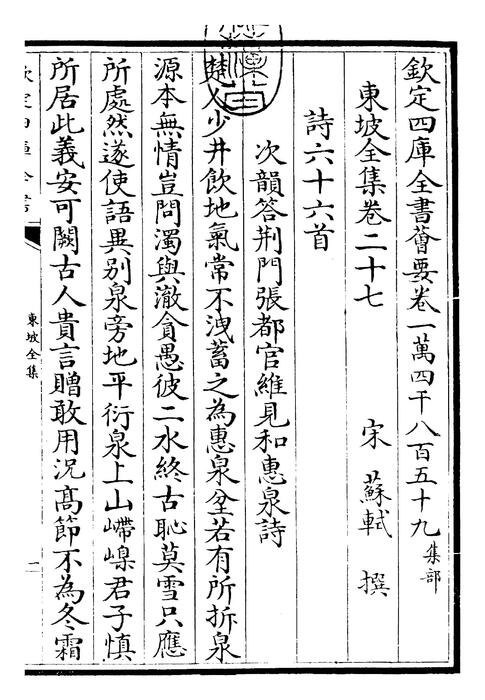 欽定四庫全書薈要卷一萬四千八百五十九集部
東坡全集卷二十七 宋 蘇軾 撰
詩六十六首
次韻答荆門張都官維見和惠泉詩
楚人少井飲地氣常不洩蓄之為惠泉坌若有所折泉
源本無情豈問濁與澈貪愚彼二水終古恥莫雪只應
所處然遂使語異别泉旁地平衍泉上山嵽嵲君子慎
所居此義安可闕古人貴言贈敢用況髙節不為冬霜
東坡全集